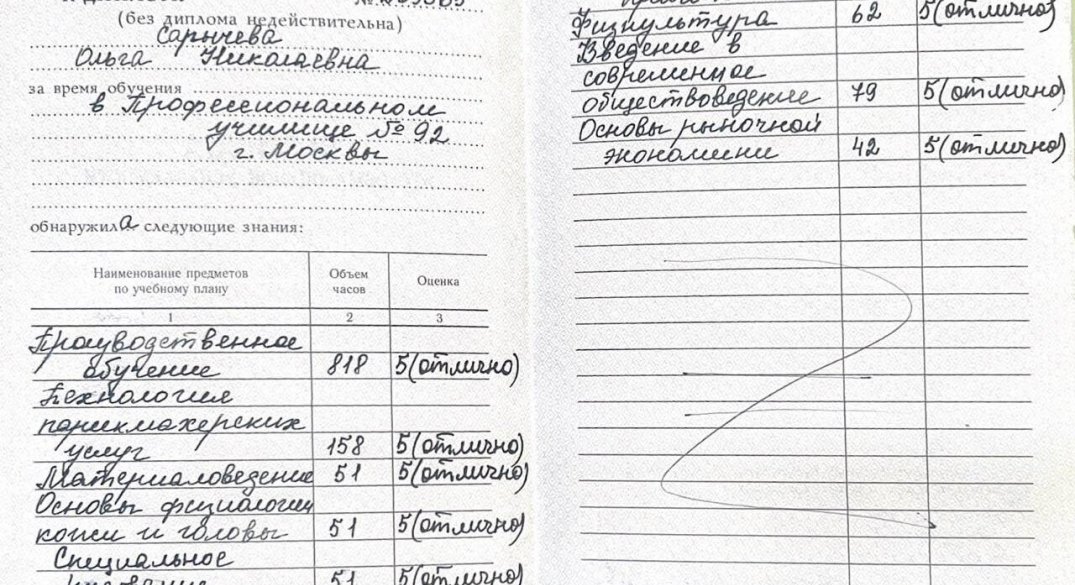 (без диплома недействительна)
Сарычева
Ольга Николаевна
за время обучения
в Профессиональном
училище № 92
г. Москвы
обнаружила следующие знания:
Наименование предметов по учебному плану Объем часов Оценка
1 2 3
Производственное
обучение 818 5(отлично)
Технология
парикмахерских
услуг 158 5(отлично)
Материаловедение 51 5(отлично)
Основы физиологии
кожи и головы 51 5(отлично)
Специальное
51 5(отлично)
Физкультура 62 5(отлично)
Введение в
современное
обществоведение 79 5(отлично)
Основы рыночной
экономики 42 5(отлично)